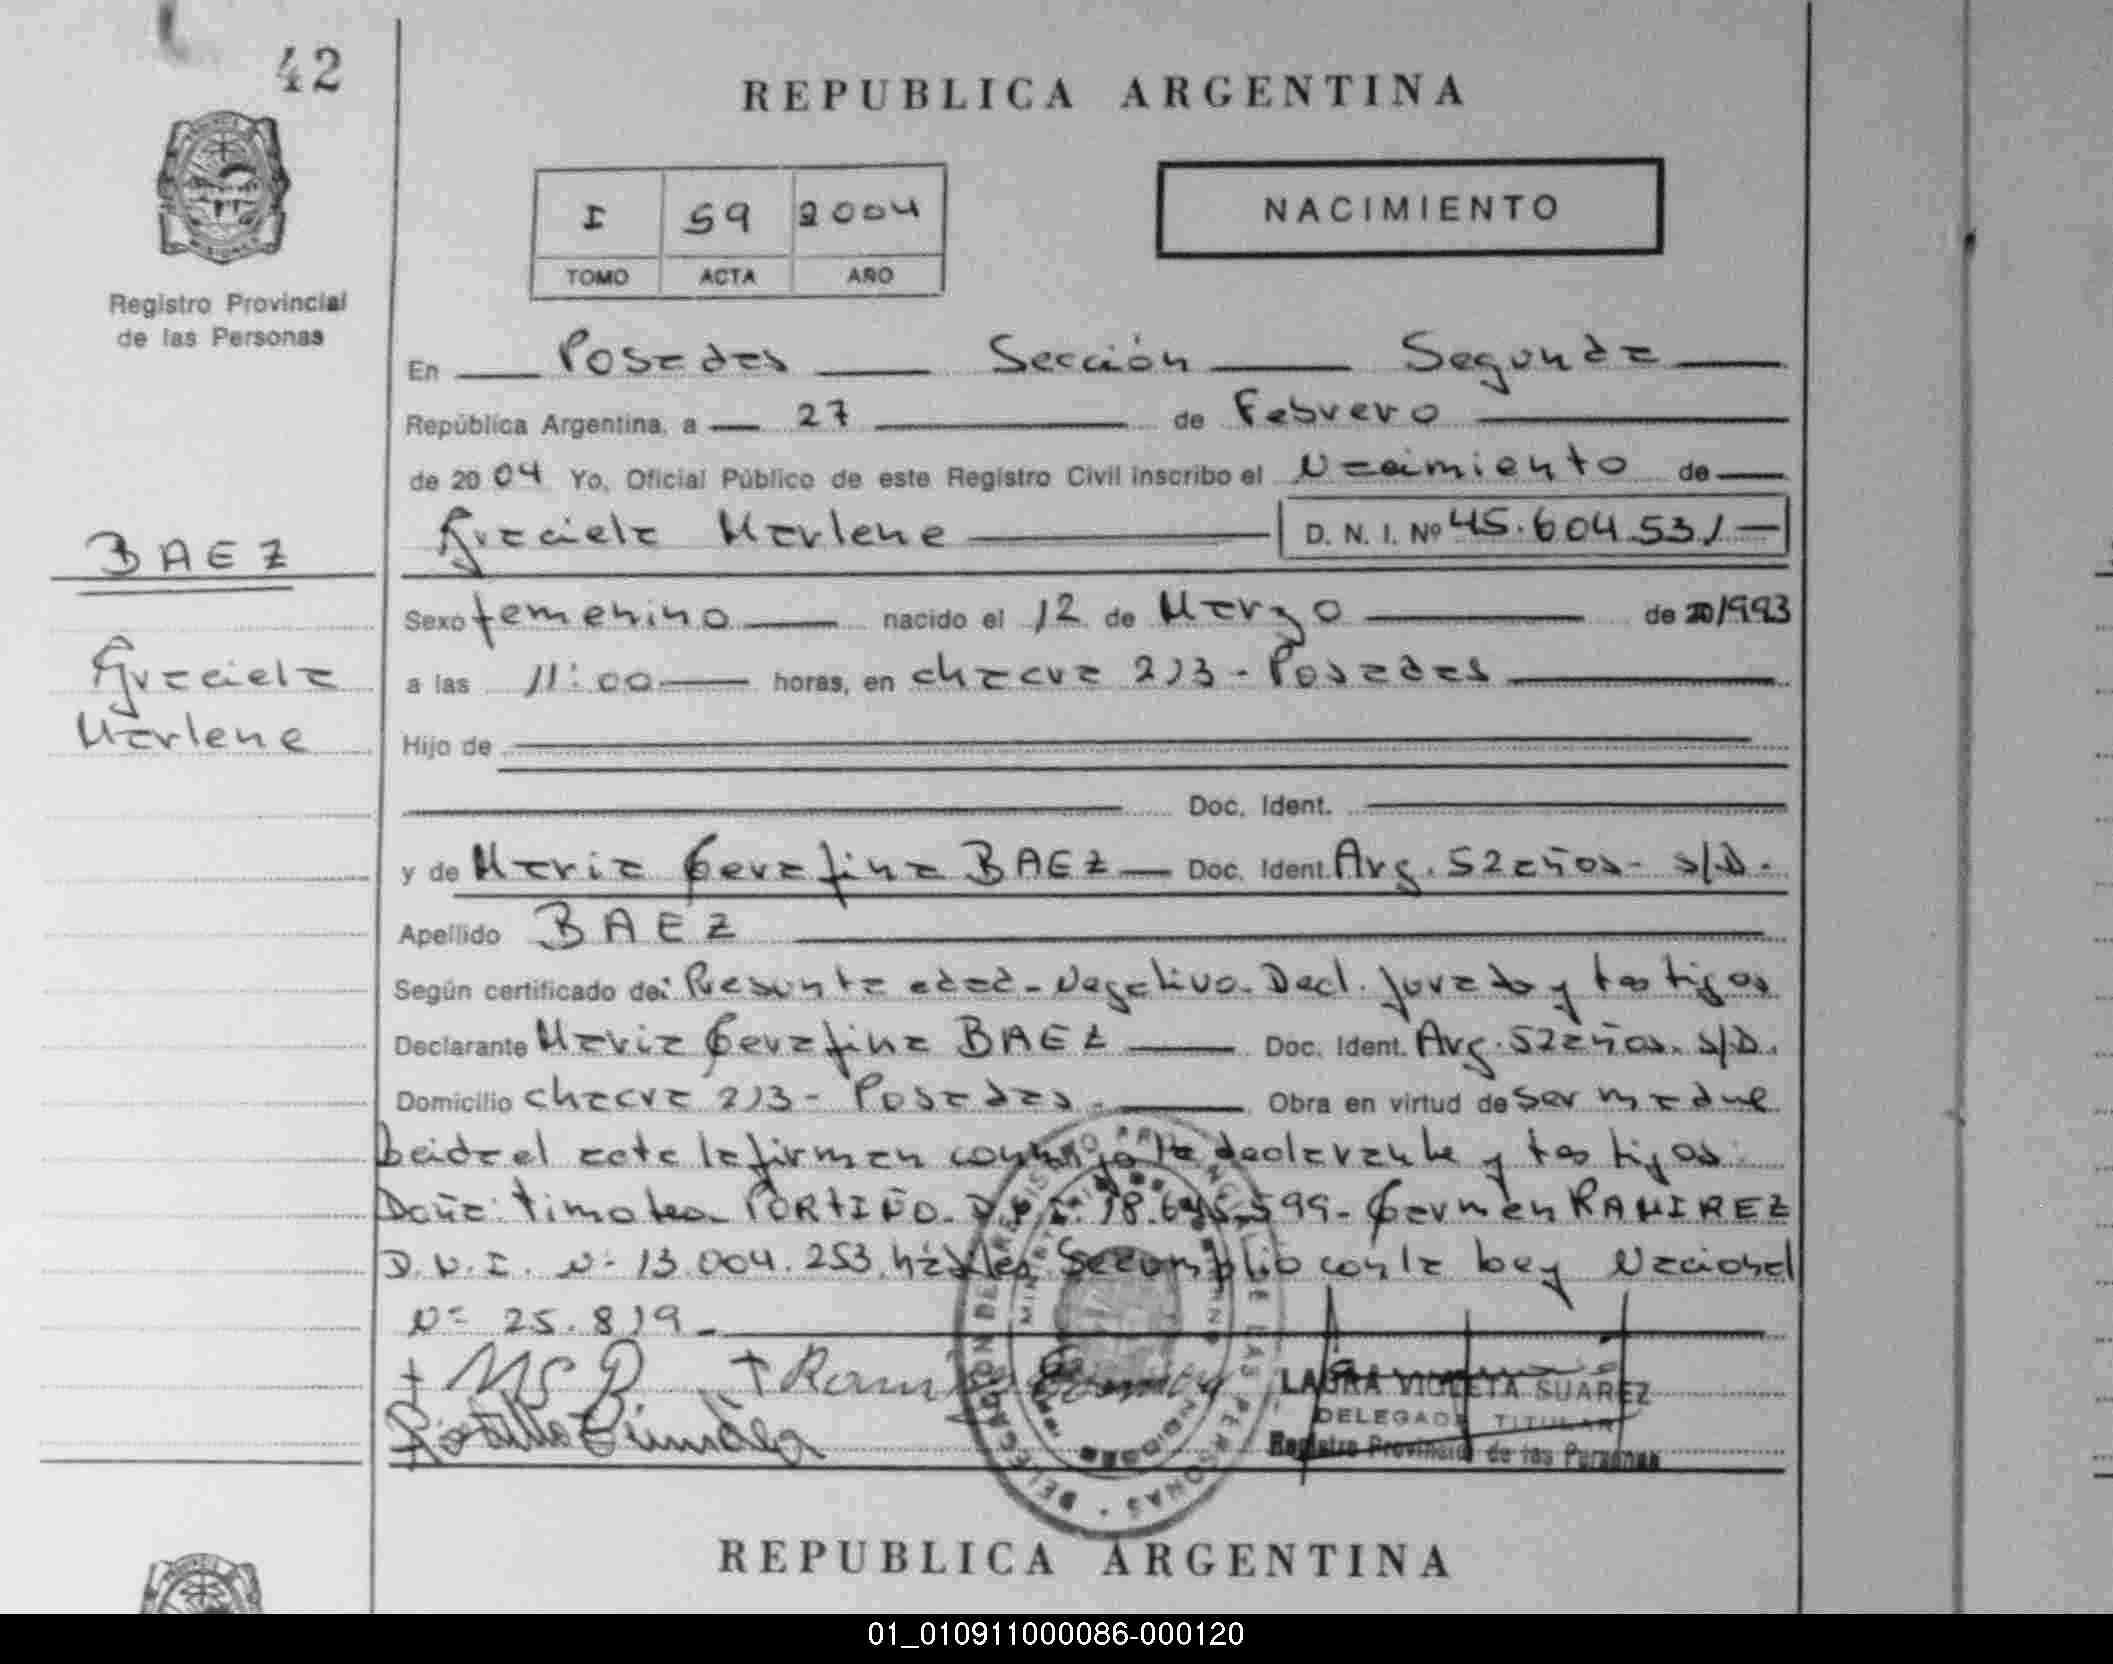 42
REPUBLICA ARGENTINA
I 59 2004
TOMO ACTA AÑO
NACIMIENTO
Registro Provincial
de las Personas
En Posadas Sección Segunda
República Argentina, a 27 de Febrero
de 2004 Yo, Oficial Público de este Registro Civil inscribo el Nacimiento de
Graciela Marlene D. N. I. Nº 45.604.531
BAEZ
Sexo femenino nacido el 12 de Marzo de 1993
Graciela
a las 11:00 horas, en chacra 213 - Posadas
Marlene
Hijo de
Doc. Ident.
y de Maria Gerafina BAEZ Doc. Ident. Arg. 52 años - s/D.
Apellido BAEZ
Según certificado de: Presunta edad - Negativo. Decl. Jurada y testigos
Declarante Maria Gerafina BAEZ Doc. Ident. Arg. 52 años. s/D.
Domicilio chacra 213 - Posadas. Obra en virtud de ser madre
Leida el acta la firman conmigo la declarante y testigos:
Doña: Timotea PORTIÑO. D.N.I. 18. 599 - German RAMIREZ
D.N.I. Nº 13.004.253. hábiles Se cumplio con la Ley Nacional
Nº 25.819.
LAURA VIOLETA SUAREZ
DELEGADA TITULAR
Registro Provincial de las Personas
DELEGACION DE REGISTRO PROVINCIAL DE LAS PERSONAS
REPUBLICA ARGENTINA
01_010911000086-000120